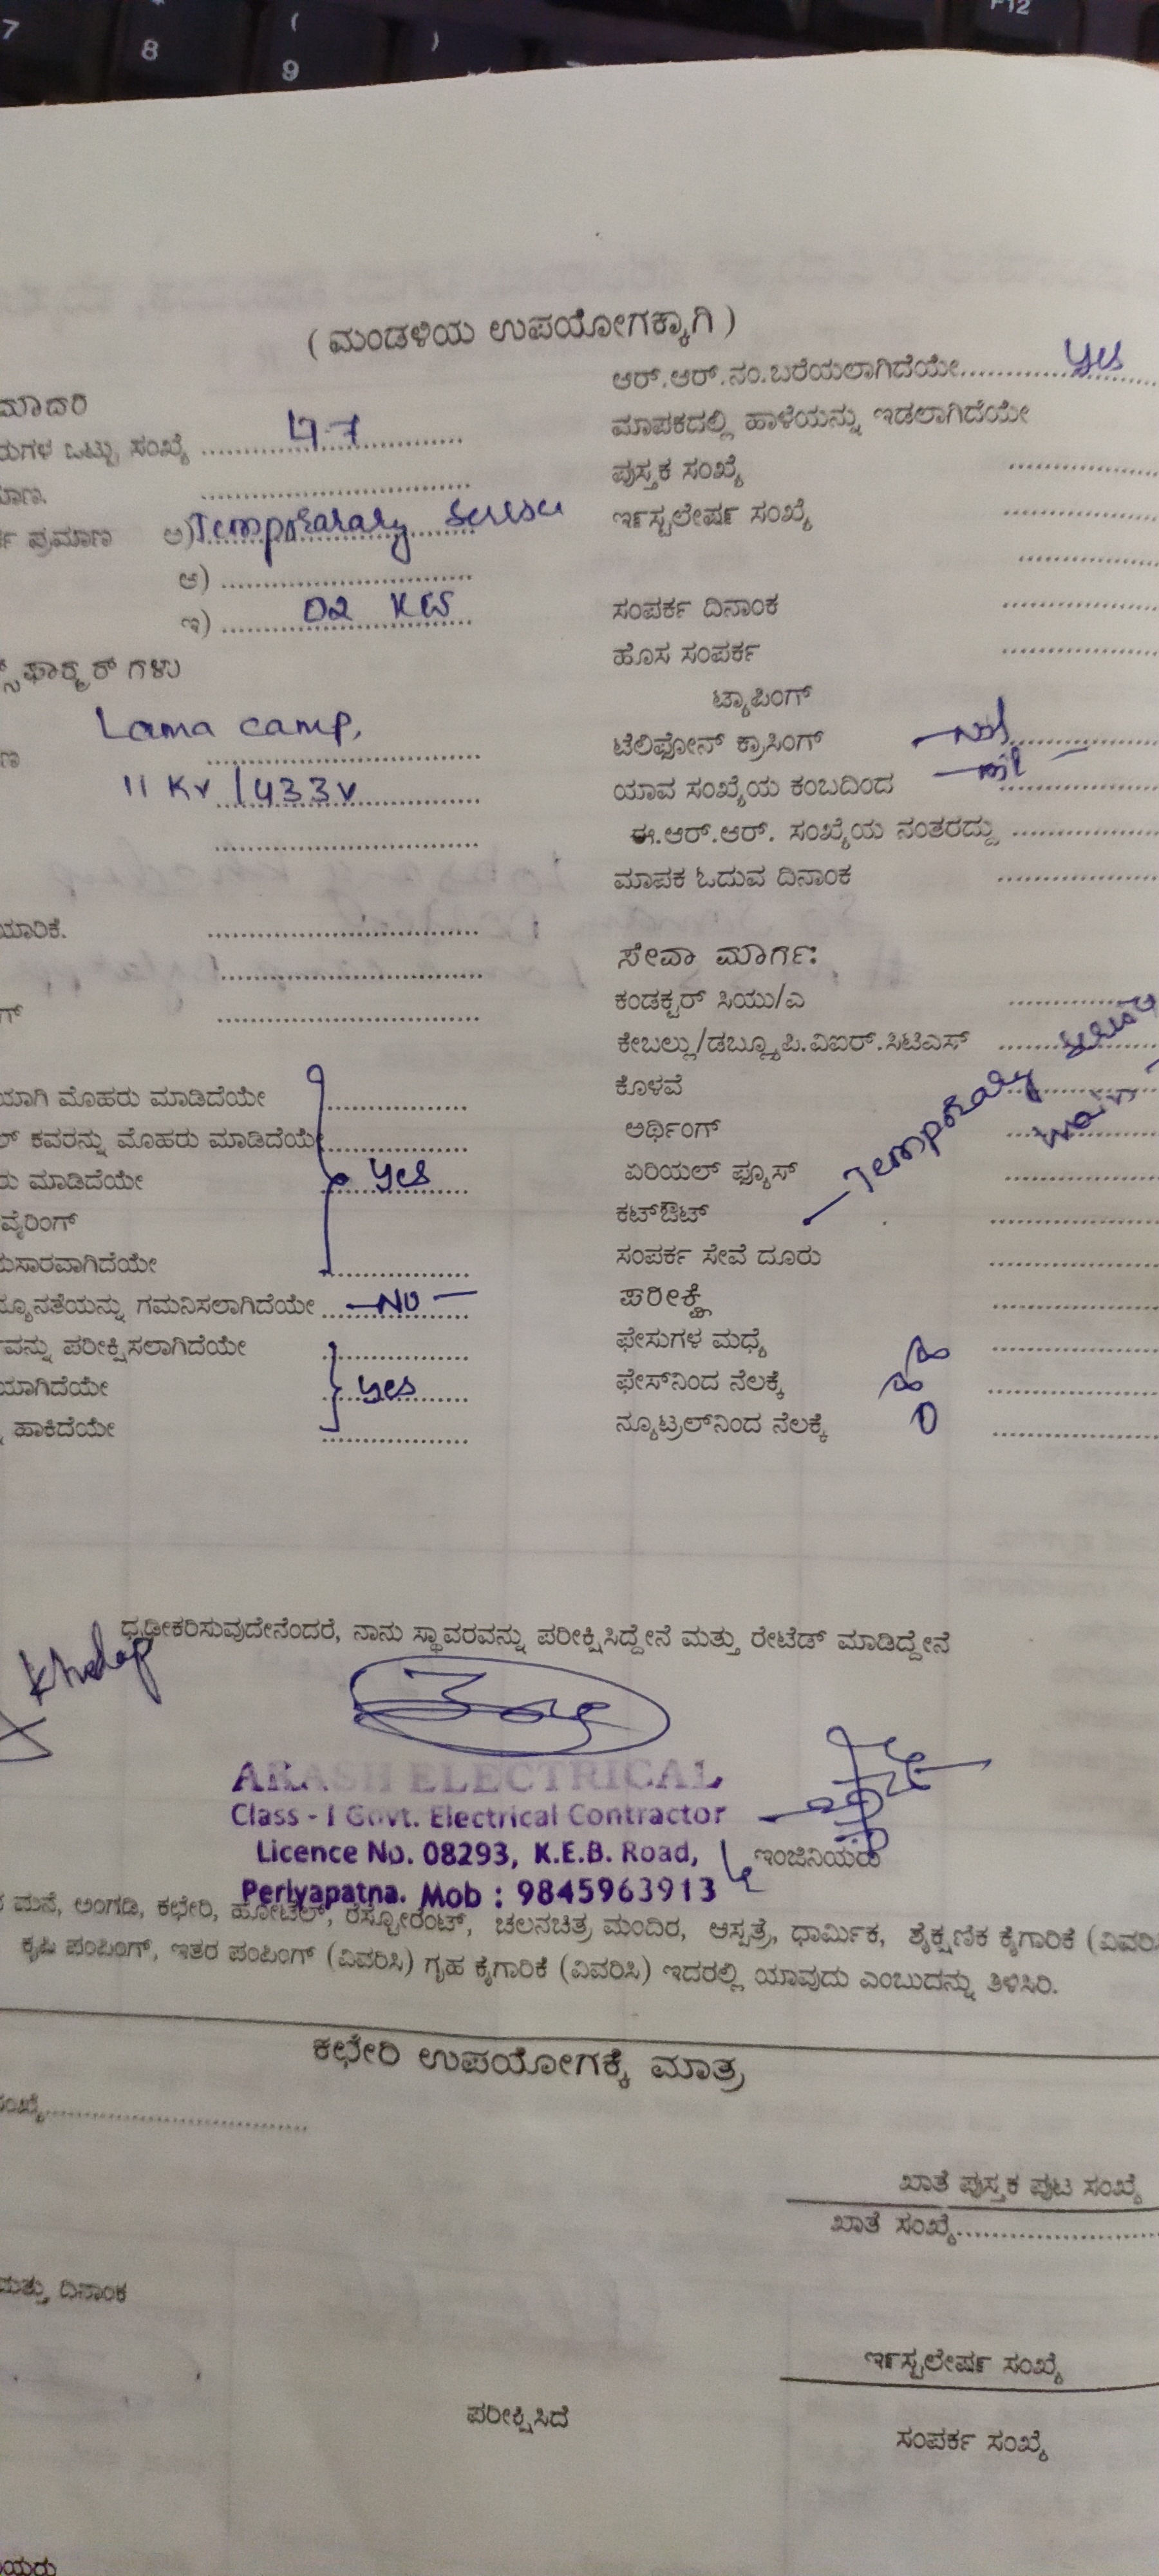 7
8
(
9
)
F12
( ಮಂಡಳಿಯ ಉಪಯೋಗಕ್ಕಾಗಿ )
ಆರ್.ಆರ್.ನಂ.ಬರೆಯಲಾಗಿದೆಯೇ.............. Yes
ಮಾದರಿ
ಮಾಪಕದಲ್ಲಿ ಹಾಳೆಯನ್ನು ಇಡಲಾಗಿದೆಯೇ
ರುಗಳ ಒಟ್ಟು ಸಂಖ್ಯೆ ........ 47
ಪುಸ್ತಕ ಸಂಖ್ಯೆ
ಮಾಣ.
ಇನ್ಸ್ಟಲೇಷನ್ ಸಂಖ್ಯೆ
ಪ್ರಮಾಣ ಅ) Temporarary
ಆ)
ಇ) 02 KW
ಸಂಪರ್ಕ ದಿನಾಂಕ
ಹೊಸ ಸಂಪರ್ಕ
ಟ್ಯಾಪಿಂಗ್
ಟೆಲಿಫೋನ್ ಕ್ರಾಸಿಂಗ್ —Nil
ಯಾವ ಸಂಖ್ಯೆಯ ಕಂಬದಿಂದ —nil —
ಈ.ಆರ್.ಆರ್. ಸಂಖ್ಯೆಯ ನಂತರದ್ದು
ಮಾಪಕ ಓದುವ ದಿನಾಂಕ
್ಸ್‌ಫಾರ್ಮರ್ ಗಳು
Lama camp,
11 Kv / 433 v
ಯಾರಿಕೆ.
ಸೇವಾ ಮಾರ್ಗ:
ಕಂಡಕ್ಟರ್ ಸಿಯು/ಎ
ಕೇಬಲ್ಲು/ಡಬ್ಲ್ಯೂಪಿ.ವಿಐರ್.ಸಿಟಿಎಸ್
ಕೊಳವೆ
ಅರ್ಥಿಂಗ್
ಏರಿಯಲ್ ಫ್ಯೂಸ್
ಕಟ್‌ಔಟ್
ಸಂಪರ್ಕ ಸೇವೆ ದೂರು
Temporary
ಪರೀಕ್ಷೆ
ಫೇಸುಗಳ ಮಧ್ಯೆ ∞
ಫೇಸ್‌ನಿಂದ ನೆಲಕ್ಕೆ ∞
ನ್ಯೂಟ್ರಲ್‌ನಿಂದ ನೆಲಕ್ಕೆ 0
ಯಾಗಿ ಮೊಹರು ಮಾಡಿದೆಯೇ
ಲ್ ಕವರನ್ನು ಮೊಹರು ಮಾಡಿದೆಯೇ
ರು ಮಾಡಿದೆಯೇ Yes
ವೈರಿಂಗ್
ುಸಾರವಾಗಿದೆಯೇ
ನ್ಯೂನತೆಯನ್ನು ಗಮನಿಸಲಾಗಿದೆಯೇ —No—
ವನ್ನು ಪರೀಕ್ಷಿಸಲಾಗಿದೆಯೇ
ಯಾಗಿದೆಯೇ Yes
ಹಾಕಿದೆಯೇ
ಧೃಢೀಕರಿಸುವುದೇನೆಂದರೆ, ನಾನು ಸ್ಥಾವರವನ್ನು ಪರೀಕ್ಷಿಸಿದ್ದೇನೆ ಮತ್ತು ರೇಟೆಡ್ ಮಾಡಿದ್ದೇನೆ
AKASH ELECTRICAL
Class - I Govt. Electrical Contractor
Licence No. 08293, K.E.B. Road,
Periyapatna. Mob : 9845963913
ಇಂಜಿನಿಯರು
ಮನೆ, ಅಂಗಡಿ, ಕಛೇರಿ, ಹೋಟೆಲ್, ರೆಸ್ಟೋರೆಂಟ್, ಚಲನಚಿತ್ರ ಮಂದಿರ, ಆಸ್ಪತ್ರೆ, ಧಾರ್ಮಿಕ, ಶೈಕ್ಷಣಿಕ ಕೈಗಾರಿಕೆ (ವಿವರಿಸಿ
ಕೃಷಿ ಪಂಪಿಂಗ್, ಇತರ ಪಂಪಿಂಗ್ (ವಿವರಿಸಿ) ಗೃಹ ಕೈಗಾರಿಕೆ (ವಿವರಿಸಿ) ಇದರಲ್ಲಿ ಯಾವುದು ಎಂಬುದನ್ನು ತಿಳಿಸಿರಿ.
ಕಛೇರಿ ಉಪಯೋಗಕ್ಕೆ ಮಾತ್ರ
ಸಂಖ್ಯೆ..............................
ಖಾತೆ ಪುಸ್ತಕ ಪುಟ ಸಂಖ್ಯೆ
ಖಾತೆ ಸಂಖ್ಯೆ......................
ಮತ್ತು ದಿನಾಂಕ
ಇನ್ಸ್ಟಲೇಷನ್ ಸಂಖ್ಯೆ
ಪರೀಕ್ಷಿಸಿದೆ
ಸಂಪರ್ಕ ಸಂಖ್ಯೆ
ಯರು